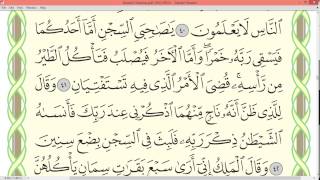 ٱلنَّاسِ لَا يَعْلَمُونَ ٤٠ يَـٰصَـٰحِبَىِ ٱلسِّجْنِ أَمَّآ أَحَدُكُمَا
فَيَسْقِى رَبَّهُۥ خَمْرًا ۖ وَأَمَّا ٱلْـَٔاخَرُ فَيُصْلَبُ فَتَأْكُلُ ٱلطَّيْرُ
مِن رَّأْسِهِۦ ۚ قُضِىَ ٱلْأَمْرُ ٱلَّذِى فِيهِ تَسْتَفْتِيَانِ ٤١ وَقَالَ
لِلَّذِى ظَنَّ أَنَّهُۥ نَاجٍ مِّنْهُمَا ٱذْكُرْنِى عِندَ رَبِّكَ فَأَنسَىٰهُ
ٱلشَّيْطَـٰنُ ذِكْرَ رَبِّهِۦ فَلَبِثَ فِى ٱلسِّجْنِ بِضْعَ سِنِينَ ٤٢
وَقَالَ ٱلْمَلِكُ إِنِّىٓ أَرَىٰ سَبْعَ بَقَرَٰتٍ سِمَانٍ يَأْكُلُهُنَّ